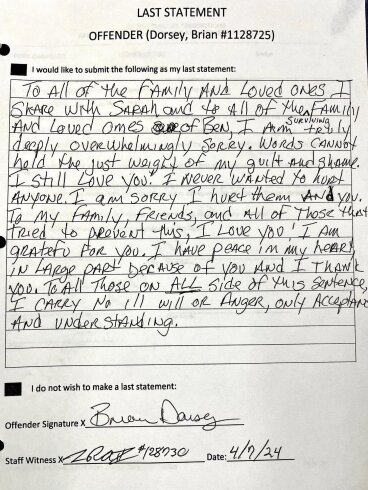 LAST STATEMENT
OFFENDER (Dorsey, Brian #1128725)
I would like to submit the following as my last statement:
To All of the Family And Loved ones I
Share with Sarah and to All of the surviving Family
And Loved ones of Ben, I Am truly
deeply overwhelmingly sorry. Words cannot
hold the just weight of my guilt and shame.
I still Love you. I never wanted to hurt
Anyone. I am sorry I hurt them And you.
To my Family, Friends, and All of Those that
Tried to prevent this, I Love you! I am
grateful for you. I have peace in my heart
in large part because of you And I Thank
you. To All Those on ALL side of this sentence,
I carry no ill will or Anger, only Acceptance
And understanding.
I do not wish to make a last statement:
Offender Signature X Brian Dorsey
Staff Witness X #128730 Date: 4/7/24